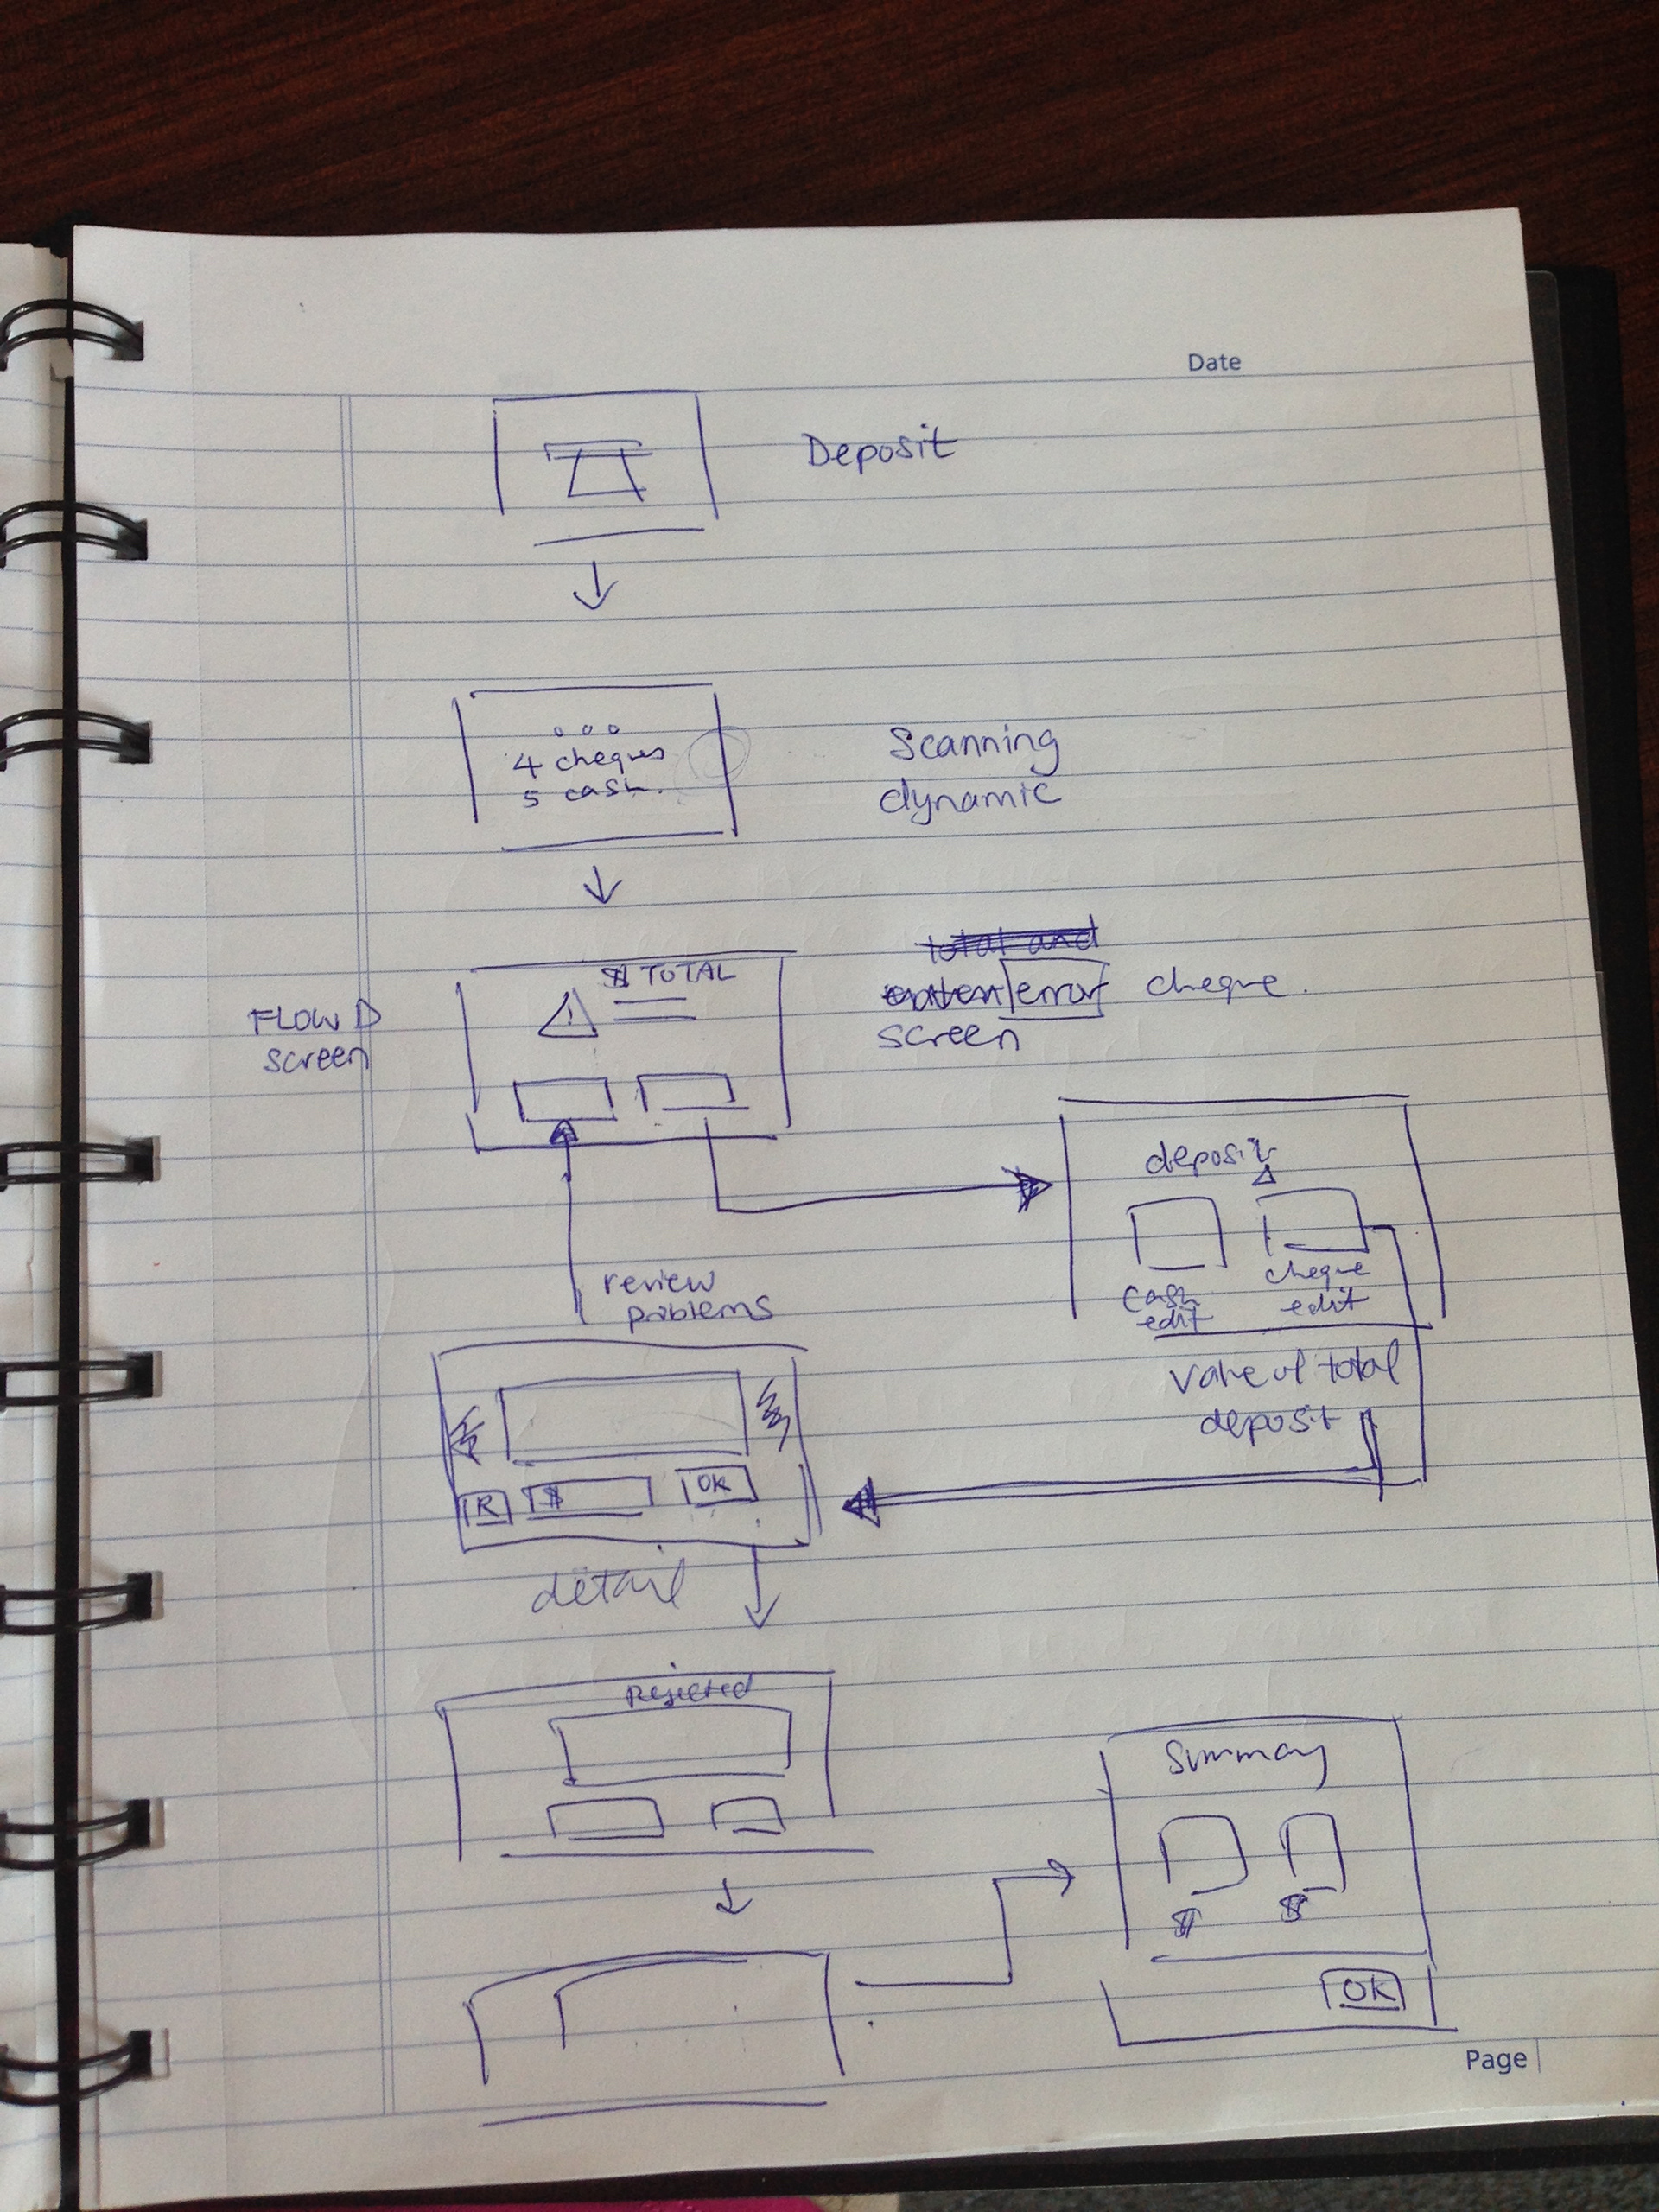 Date
Deposit
4 cheques
5 cash.
Scanning
dynamic
total and
error cheque.
screen
$ TOTAL
!
FLOW D
screen
deposit
cash
edit
cheque
edit
value of total
deposit
review
problems
R $ OK
detail
Rejected
Summary
$ $
OK
Page